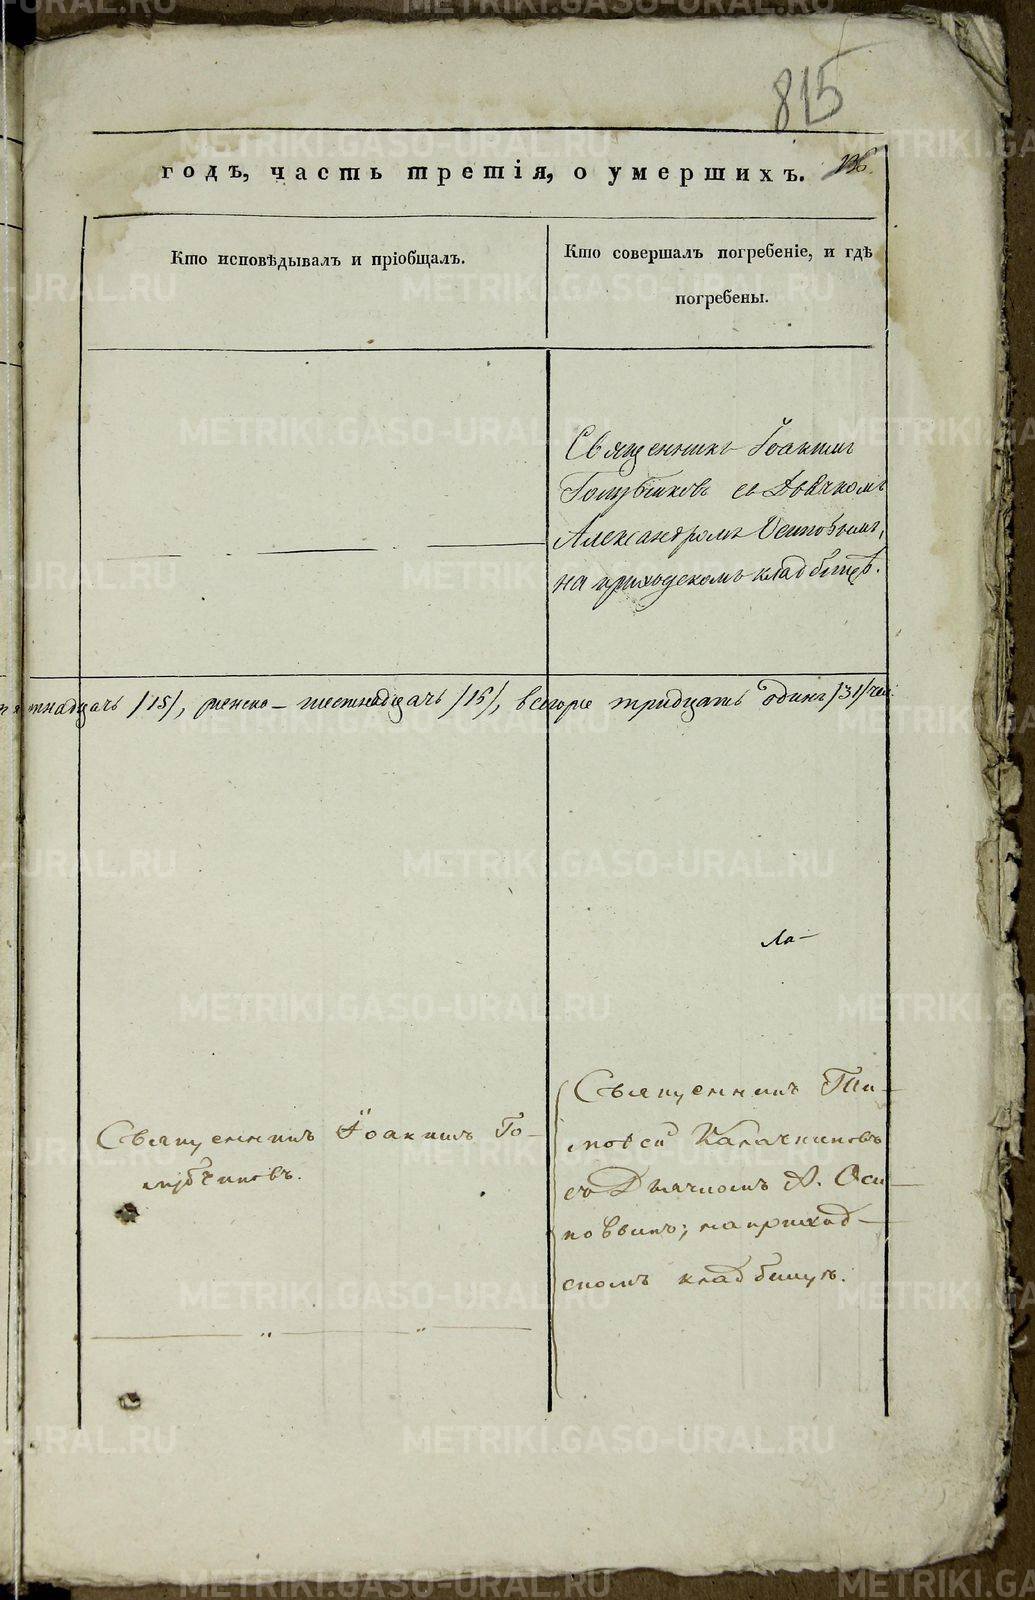 815
годъ, часть третія, о умершихъ. 136.
Кто исповѣдывалъ и пріобщалъ.
Кто совершалъ погребеніе, и гдѣ
погребены.
Священникъ Іоакимъ
Голубчиковъ съ Дьячкомъ
Александромъ Осиповымъ,
на приходскомъ кладбищѣ.
тнадцать /15/, женска – шестнадцать /16/, всего тридцать одинъ /31/ чел.
Ла–
Священникъ Іоакимъ Го–
лубчиковъ.
Священникъ Ти–
моѳей Калачниковъ
съ Дьячкомъ А. Оси–
повымъ; на приход–
скомъ кладбищѣ.
METRIKI.GASO-URAL.RU